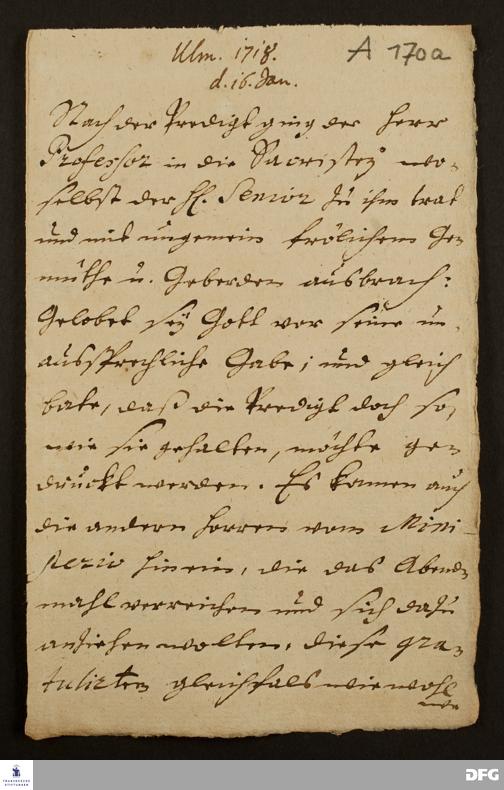 Ulm. 1718.
A 170a
d. 16. Jan.
Nach der Predigt ging der Herr
Professor in die Sacristey wo-
selbst der H. Senior zu ihm trat
und mit ungemein frölichem Ge-
müthe u. Geberden ausbrach:
Gelobet sey Gott vor seine un-
aussprechliche Gabe; und gleich
bate, daß die Predigt doch so,
wie sie gehalten, möchte ge-
druckt werden. Es kamen auch
die andern Herren vom Mini-
sterio hinein, die das Abend-
mahl verreichen und sich dazu
anziehen wolten, diese gra-
tulirten gleichfals wiewohl
FRANCKESCHE
STIFTUNGEN
DFG